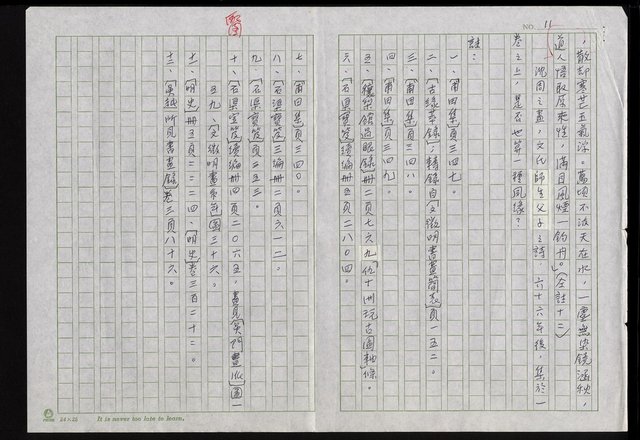 NO. 11
，散却寒芒玉氣浮。萬頃不波天在水，一塵無染鏡涵秋，
道人悟取原來性，滿目風煙一釣舟。(仝註十二)
沈周之畫，文氏師生父子之詩，六十六年後，集於一
卷之上，是否也算一種風緣？
註：
一、〔甫田集〕頁三四七。
二、〔古緣萃錄〕，轉錄自〔文徵明書畫簡表〕頁一五二。
三、〔甫田集〕頁三四八。
四、〔甫田集〕頁三四九。
五、〔穰梨館過眼錄〕冊二頁七六九「仇十洲玩古圖軸」條。
六、〔石渠寶笈〕續編冊五頁二八〇四。
七、〔甫田集〕頁三四〇。
八、〔石渠寶笈〕三編冊二頁六一二。
九、〔石渠寶笈〕頁五五三。
十、〔石渠寶笈〕續編冊四頁二〇六五，畫見〔吳門畫派〕圖一
五九、〔文徵明畫系年〕圖三十六。
十一、〔明史〕冊五頁二二二四、〔明史〕卷三百二十二。
十二、〔吳越所見書畫錄〕卷三頁八十六。
24×25
It is never too late to learn.